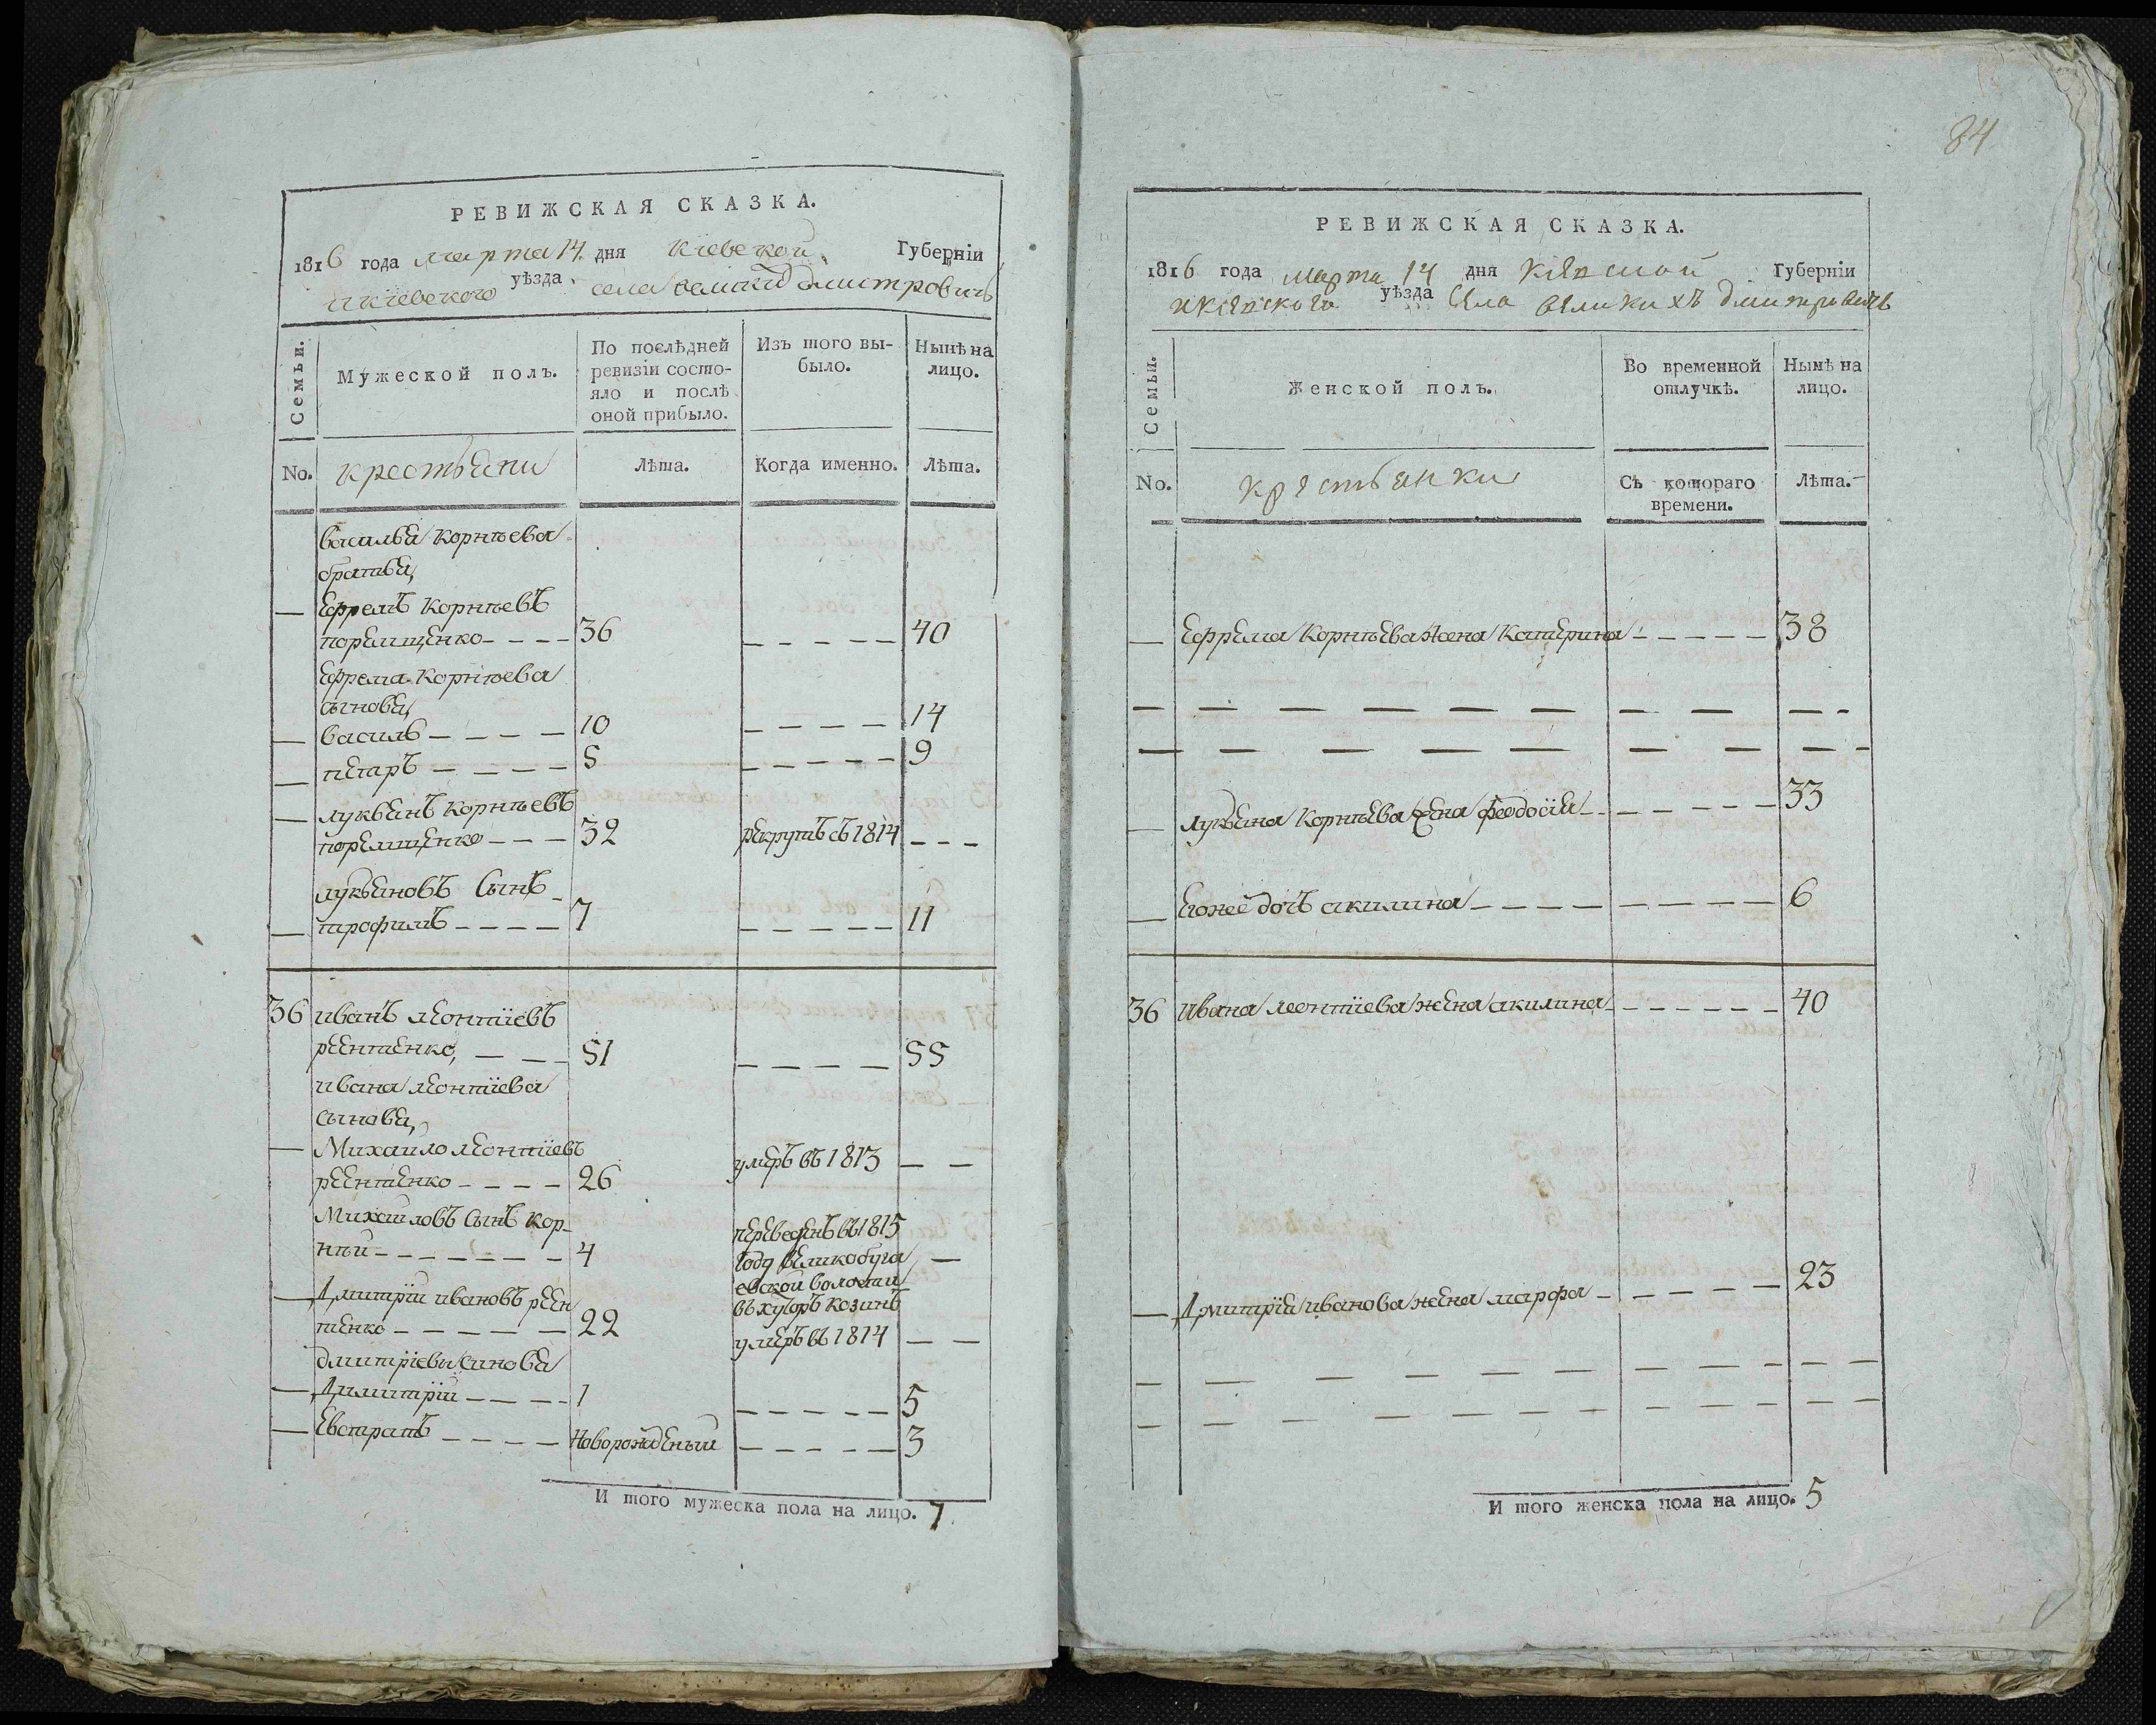 РЕВИЖСКАЯ СКАЗКА.
1816 года марта 14 дня Кіевской Губерніи
и Кіевского уѣзда села великихъ дмитровичь
Семьи.
Мужеской полъ.
По послѣдней ревизіи состояло и послѣ оной прибыло.
Изъ того выбыло.
Нынѣ на лицо.
No. крестьяни Лѣта. Когда именно. Лѣта.
василья Корнѣева
братья,
— Ефремъ Корнѣевъ
поремщенко - - - - 36 - - - - - 40
Ефрема Корнѣева
сыновя,
— василь - - - - 10 - - - - 14
— петръ - - - - 5 - - - - - 9
— лукьянъ Корнѣевъ
поремщенко - - - 32 рекрутъ съ 1814 - - -
лукьяновъ Сынъ
— трофимъ - - - - 7 - - - - - 11
36 иванъ леонтіевъ
реентенко, - - - 51 - - - - 55
ивана леонтіева
сыновя,
— Михаило леонтіевъ
реентенко - - - - 26 умеръ въ 1813 — —
Михаиловъ Сынъ кор-
нѣй - - - - - - 4 переведенъ въ 1815
году великобуга
евской волости
въ хуторъ козинъ —
— Дмитрій ивановъ реен
тенко - - - - - 22 умеръ въ 1814 — —
дмитріевы синовя
— Димитрій - - - - 1 - - - - - 5
— Евстратъ - - - - Новорожденый - - - - - 3
И того мужеска пола на лицо. 7
84
РЕВИЖСКАЯ СКАЗКА.
1816 года марта 14 дня Кіевской Губерніи
и Кіевского уѣзда Села великихъ дмитровичь
Семьи.
Женской полъ.
Во временной отлучкѣ.
Нынѣ на лицо.
No. крестьянки Съ котораго времени. Лѣта.
— Ефрема Корнѣева жена Катерина - - - - - 38
— — — — — — — — — —
— — — — — — — — — —
— лукьяна Корнѣева жена феодосія - - - - - - 33
— Егожее дочъ акилина - - - - - - - - - 6
36 ивана леонтіева жена акилина - - - - - - - 40
— Дмитрія иванова жена марфа - - - - - 23
— — — — — — — — — —
— — — — — — — — — —
И того женска пола на лицо. 5